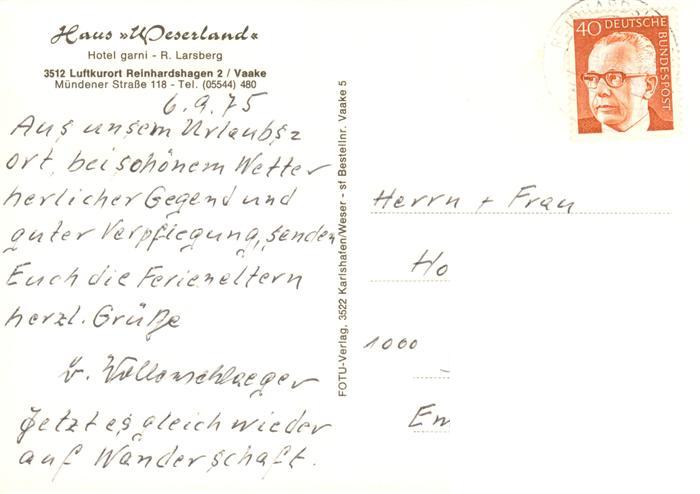 Haus »Weserland«
Hotel garni - R. Larsberg
3512 Luftkurort Reinhardshagen 2 / Vaake
Mündener Straße 118 - Tel. (05544) 480
6.9.75
Aus unsem Urlaubs=
ort, bei schönem Wetter
herlicher Gegend und
guter Verpflegung, senden
Euch die Ferieneltern
herzl. Grüße
v. Wollenschlaeger
Jetzt es gleich wieder
auf Wanderschaft.
FOTU-Verlag, 3522 Karlshafen/Weser - sf Bestellnr. Vaake 5
40 DEUTSCHE BUNDESPOST
Herrn + Frau
Ho
1000
Em